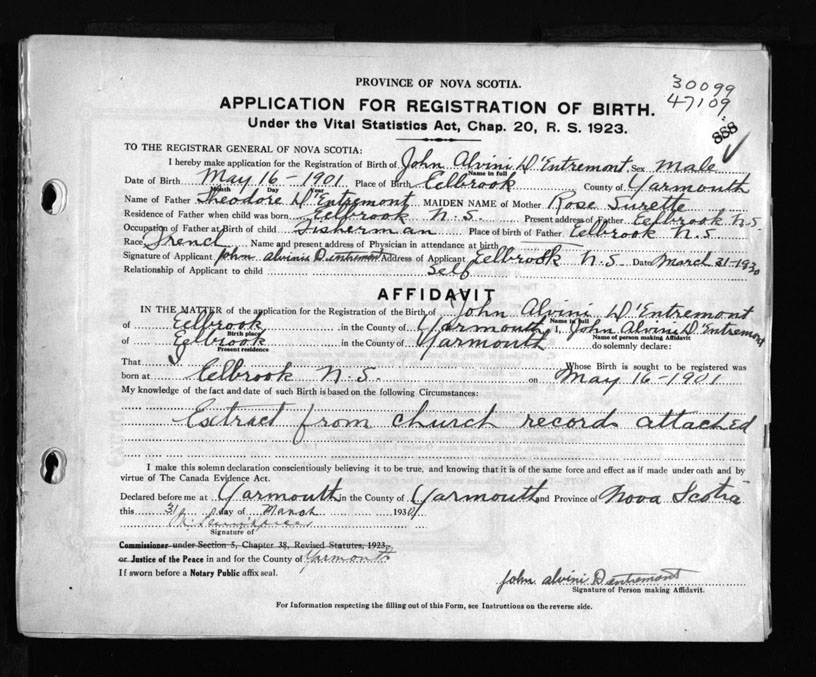 30099
47109
888
PROVINCE OF NOVA SCOTIA.
APPLICATION FOR REGISTRATION OF BIRTH.
Under the Vital Statistics Act, Chap. 20, R. S. 1923.
TO THE REGISTRAR GENERAL OF NOVA SCOTIA:
I hereby make application for the Registration of Birth of John Alvini D'Entremont Sex Male
Name in full
Date of Birth May 16 - 1901 Place of Birth Eelbrook County of Yarmouth
Month Day Year
Name of Father Theodore D'Entremont MAIDEN NAME of Mother Rose Surette
Residence of Father when child was born Eelbrook N.S. Present address of Father Eelbrook N.S.
Occupation of Father at Birth of child Fisherman Place of birth of Father Eelbrook N.S.
Race French Name and present address of Physician in attendance at birth
Signature of Applicant John alvinis Dentremont Address of Applicant Eelbrook N.S. Date March 31-1930
Relationship of Applicant to child Self
AFFIDAVIT
IN THE MATTER of the application for the Registration of the Birth of John Alvini D'Entremont
Name in full
of Eelbrook in the County of Yarmouth I, John Alvini D'Entremont
Birth place Name of person making Affidavit
of Eelbrook in the County of Yarmouth do solemnly declare:
Present residence
That Whose Birth is sought to be registered was
born at Eelbrook N.S. on May 16-1901
My knowledge of the fact and date of such Birth is based on the following Circumstances:
Extract from church records attached
I make this solemn declaration conscientiously believing it to be true, and knowing that it is of the same force and effect as if made under oath and by
virtue of The Canada Evidence Act.
Declared before me at Yarmouth in the County of Yarmouth and Province of Nova Scotia
this 31 day of March 1930
Signature of
Commissioner under Section 5, Chapter 38, Revised Statutes, 1923,
or Justice of the Peace in and for the County of Yarmouth
If sworn before a Notary Public affix seal.
John alvini Dentremont
Signature of Person making Affidavit.
For Information respecting the filling out of this Form, see Instructions on the reverse side.